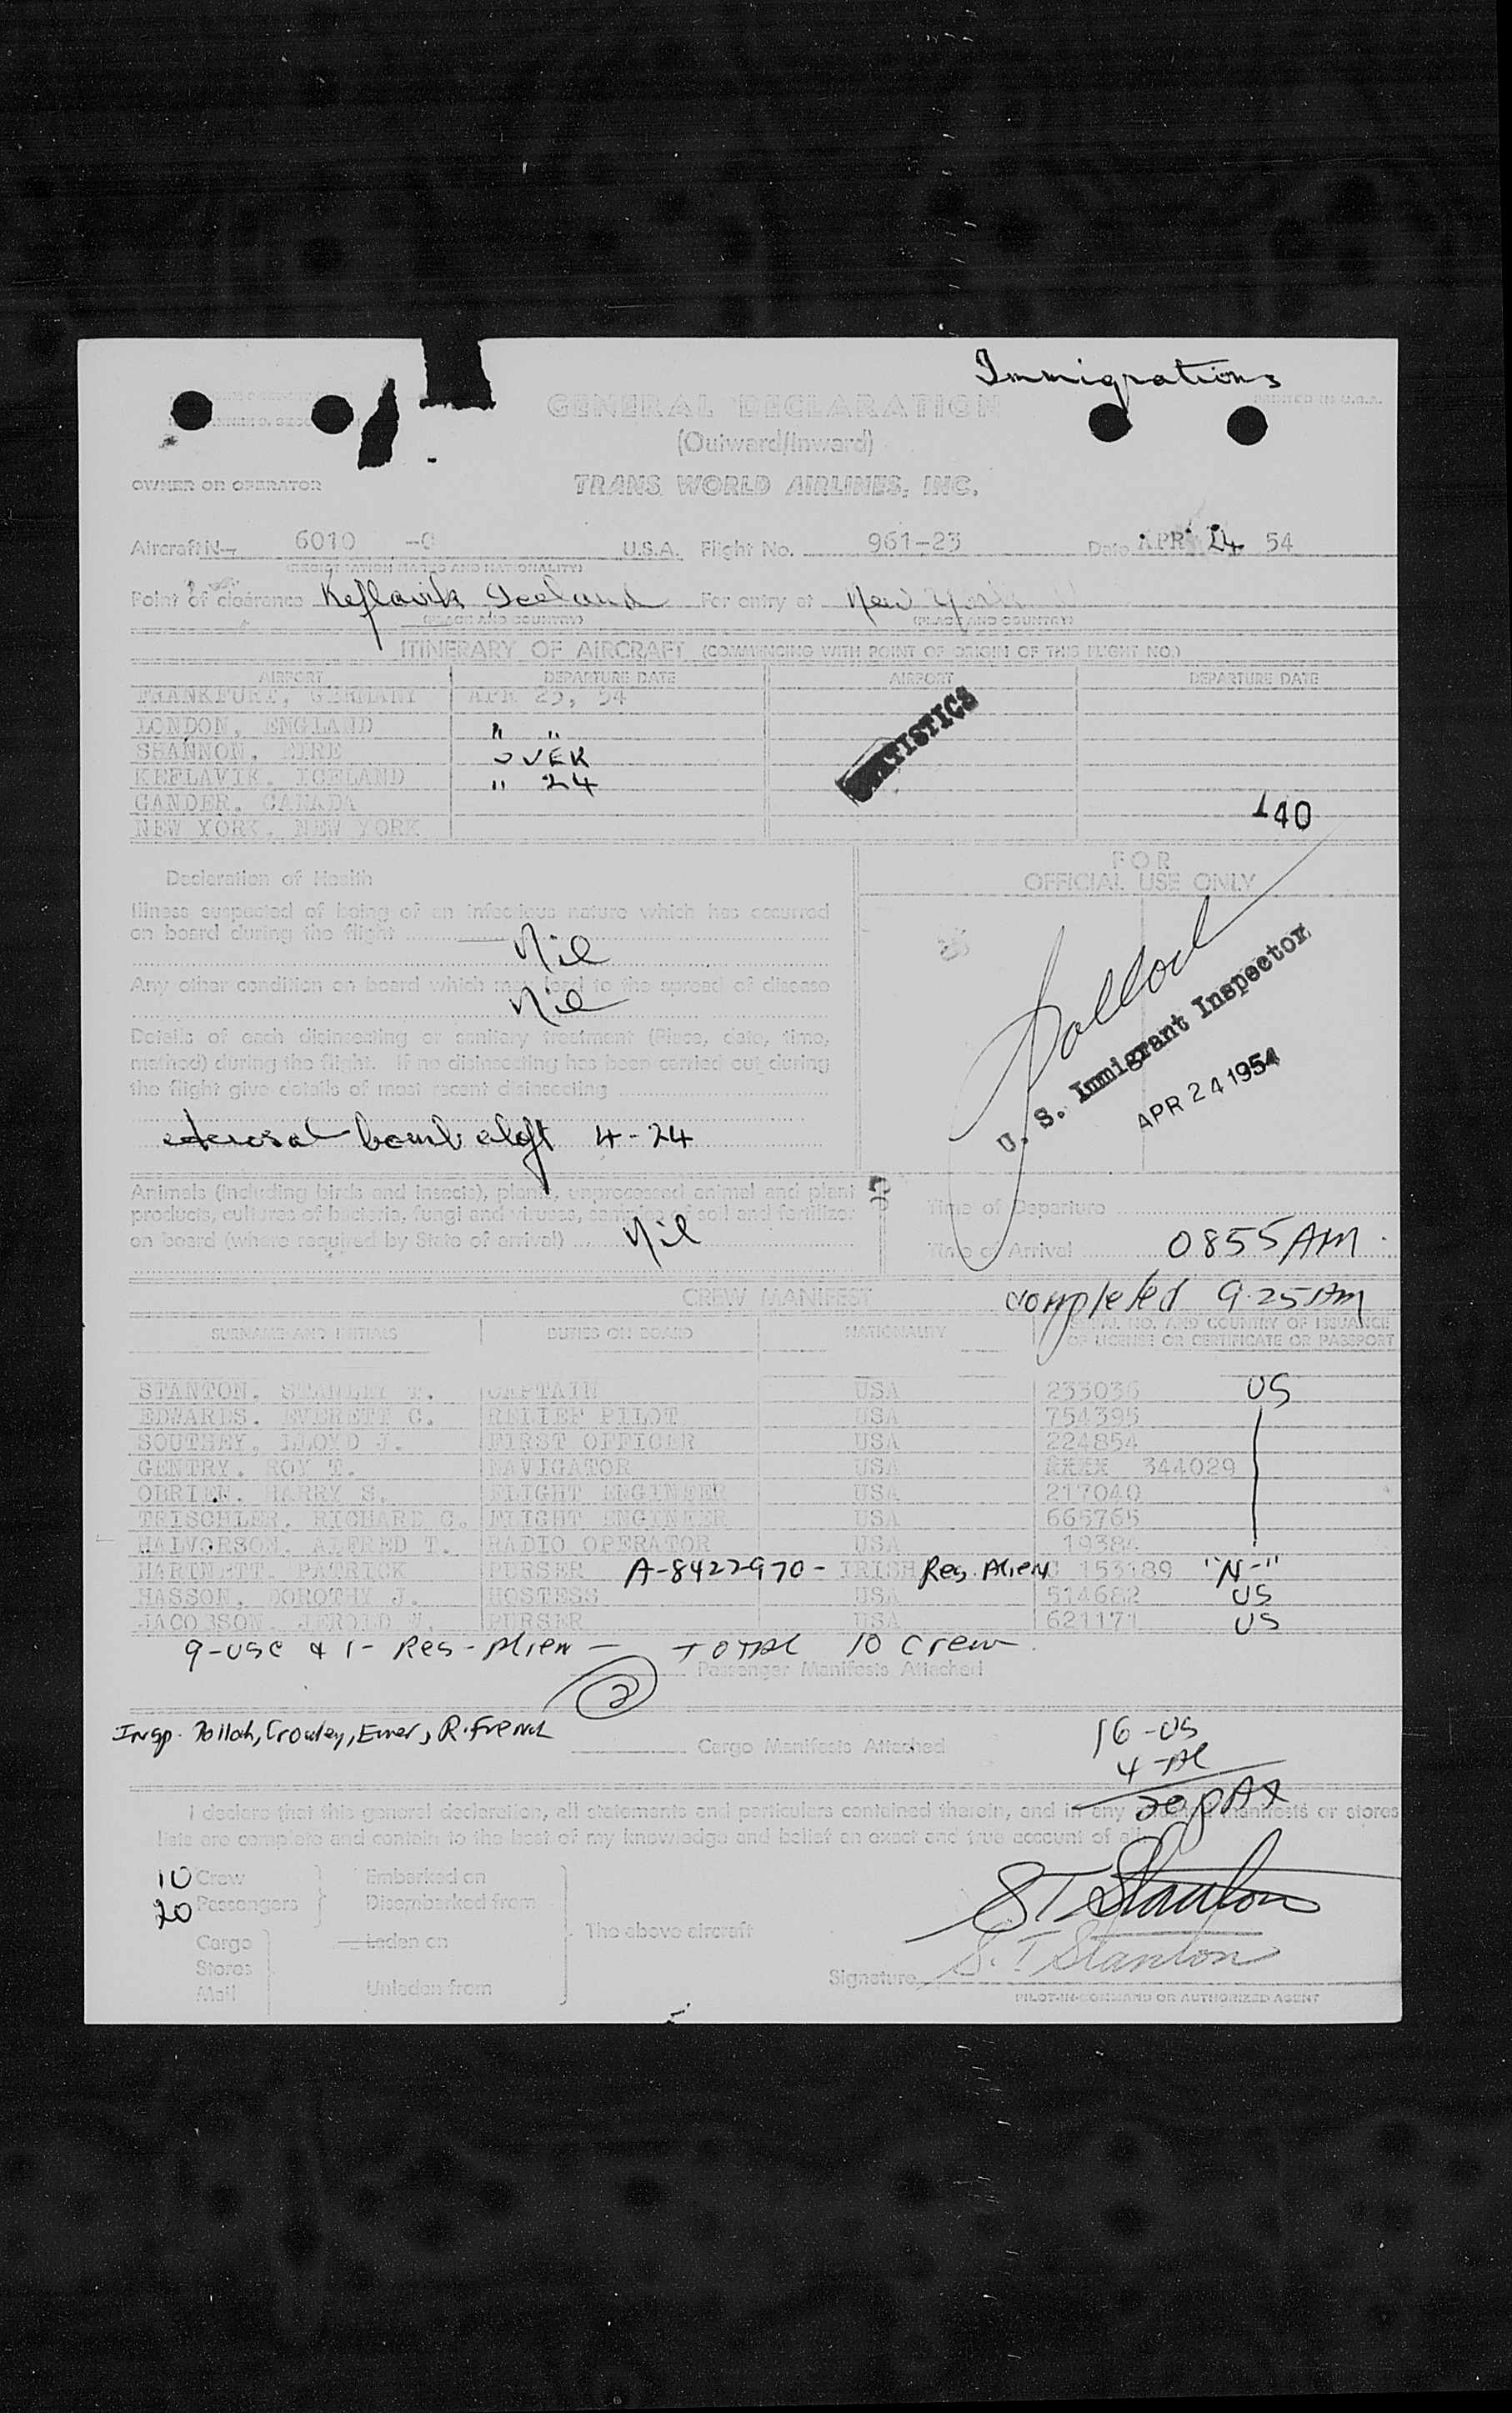 Immigrations
PRINTED IN U.S.A.
GENERAL DECLARATION
(Outward/Inward)
OWNER OR OPERATOR
TRANS WORLD AIRLINES, INC.
Aircraft N- 6010 -C U.S.A. Flight No. 961-23 Date APR 24 54
(REGISTRATION MARKS AND NATIONALITY)
Point of clearance Keflavik Iceland For entry at New York
(PLACE AND COUNTRY) (PLACE AND COUNTRY)
ITINERARY OF AIRCRAFT (COMMENCING WITH POINT OF ORIGIN OF THIS FLIGHT NO.)
AIRPORT DEPARTURE DATE AIRPORT DEPARTURE DATE
FRANKFURT, GERMANY APR 23, 54
LONDON, ENGLAND " "
SHANNON, EIRE OVER
KEFLAVIK, ICELAND " 24
GANDER, CANADA
NEW YORK, NEW YORK
STATISTICS
140
Declaration of Health
Illness suspected of being of an infectious nature which has occurred
on board during the flight
Nil
Any other condition on board which may lead to the spread of disease
Nil
Details of each disinsecting or sanitary treatment (Place, date, time,
method) during the flight. If no disinsecting has been carried out during
the flight give details of most recent disinsecting
bomb aloft 4-24
Animals (including birds and insects), plants, unprocessed animal and plant
products, cultures of bacteria, fungi and viruses, samples of soil and fertilizer
on board (where required by State of arrival) Nil
FOR
OFFICIAL USE ONLY
Pollock
U. S. Immigrant Inspector
APR 24 1954
Time of Departure
Time of Arrival 0855 AM
completed 9.25 AM
CREW MANIFEST
SURNAME AND INITIALS DUTIES ON BOARD NATIONALITY SERIAL NO. AND COUNTRY OF ISSUANCE
OF LICENSE OR CERTIFICATE OR PASSPORT
STANTON, STANLEY T. CAPTAIN USA 233036 US
EDWARDS, EVERETT C. RELIEF PILOT USA 754395
SOUTHEY, LLOYD J. FIRST OFFICER USA 224854
GENTRY, ROY T. NAVIGATOR USA XXXX 344029
OBRIEN, HARRY S. FLIGHT ENGINEER USA 217040
TRISCHLER, RICHARD C. FLIGHT ENGINEER USA 665765
HALVORSON, ALFRED T. RADIO OPERATOR USA 19384
HARTNETT, PATRICK PURSER A-8422970- IRISH Res. Alien C 153189 "N-"
HASSON, DOROTHY J. HOSTESS USA 514682 US
JACOBSON, JEROLD W. PURSER USA 621171 US
9-USC & 1- Res-Alien - TOTAL 10 Crew
2 Passenger Manifests Attached
Insp. Pollock, Crowley, R. French
Cargo Manifests Attached
16-US
4-Al
20 pax
I declare that this general declaration, all statements and particulars contained therein, and in any manifests or stores
lists are complete and contain to the best of my knowledge and belief an exact and true account of all
10 Crew Embarked on
20 Passengers Disembarked from
The above aircraft
Cargo Laden on
Stores
Mail Unladen from
ST Stanton
Signature S. T Stanton
PILOT-IN-COMMAND OR AUTHORIZED AGENT